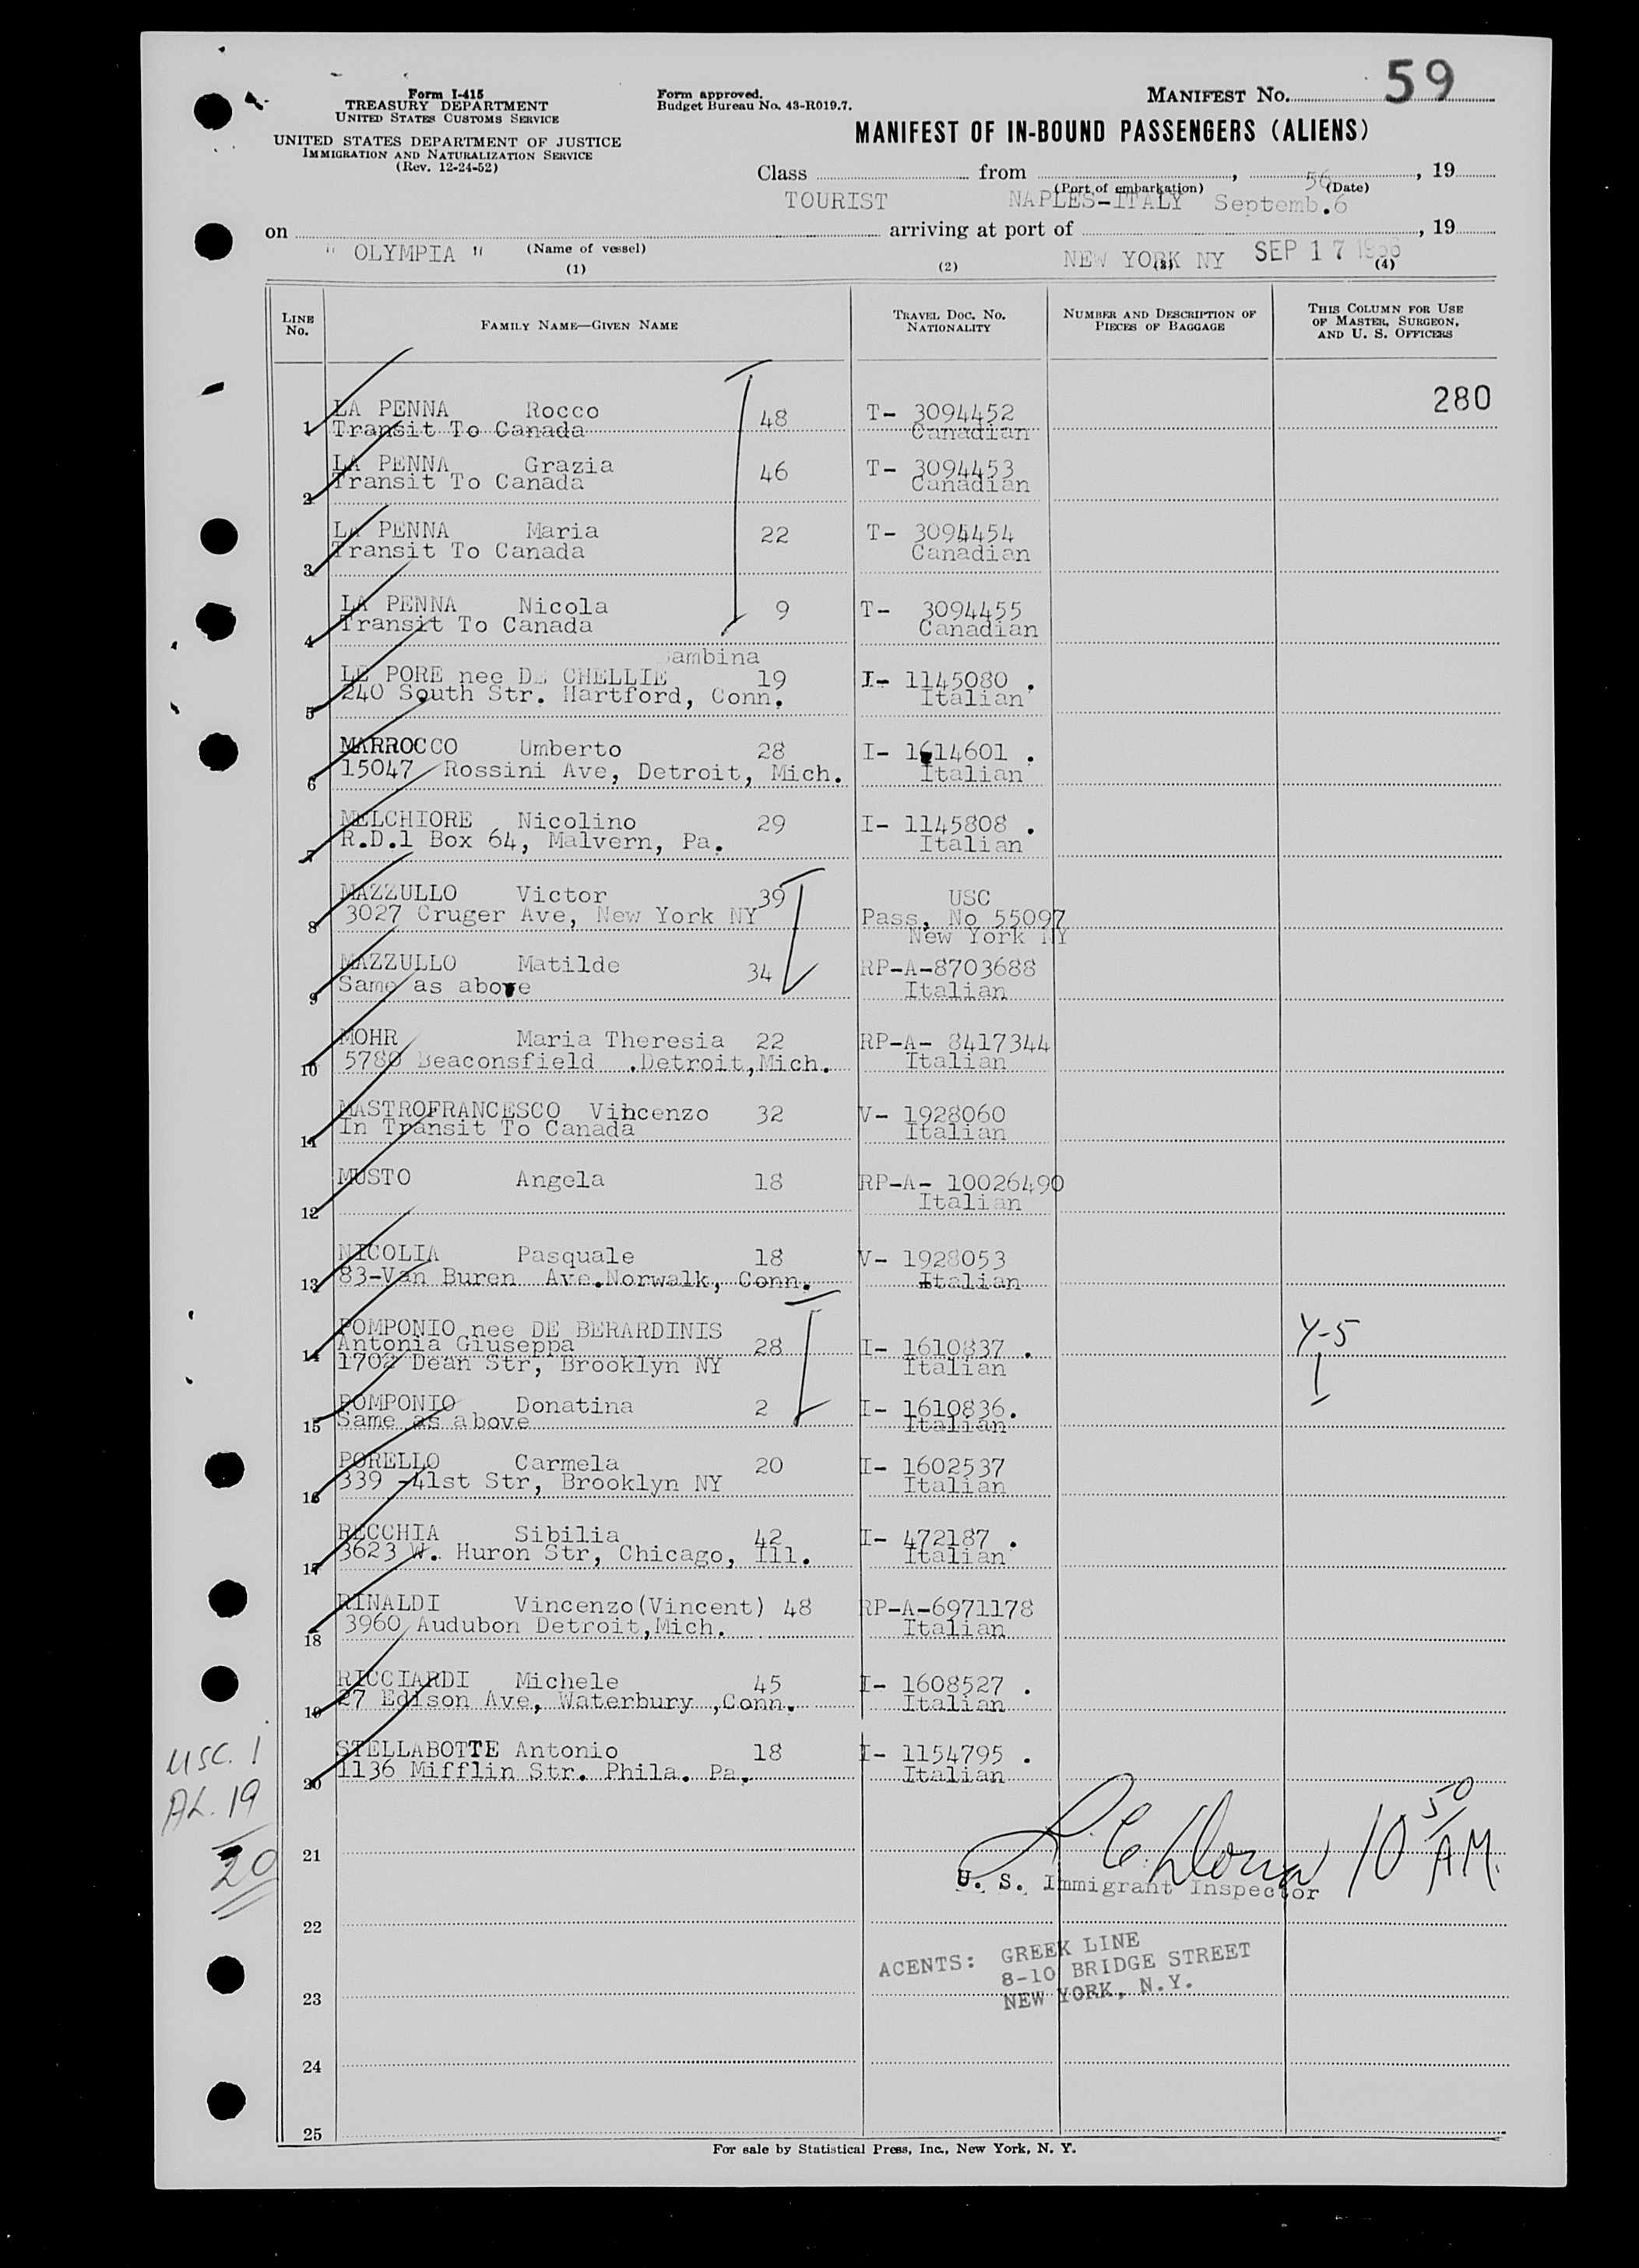 Form I-415
TREASURY DEPARTMENT
UNITED STATES CUSTOMS SERVICE
UNITED STATES DEPARTMENT OF JUSTICE
IMMIGRATION AND NATURALIZATION SERVICE
(Rev. 12-24-52)
Form approved.
Budget Bureau No. 43-R019.7.
MANIFEST No. 59
MANIFEST OF IN-BOUND PASSENGERS (ALIENS)
Class from , , 19
(Port of embarkation) 56 (Date)
TOURIST NAPLES-ITALY Septemb.6
on arriving at port of , 19
" OLYMPIA " (Name of vessel) NEW YORK NY SEP 17 1956
(1) (2) (3) (4)
LINE No. FAMILY NAME—GIVEN NAME TRAVEL DOC. NO. NATIONALITY NUMBER AND DESCRIPTION OF PIECES OF BAGGAGE THIS COLUMN FOR USE OF MASTER, SURGEON, AND U. S. OFFICERS
280
LA PENNA Rocco 48 T- 3094452
1 Transit To Canada Canadian
LA PENNA Grazia 46 T- 3094453
2 Transit To Canada Canadian
LA PENNA Maria 22 T- 3094454
3 Transit To Canada Canadian
LA PENNA Nicola 9 T- 3094455
4 Transit To Canada Canadian
ambina
LE PORE nee DE CHELLIE 19 I- 1145080 .
5 240 South Str. Hartford, Conn. Italian
MARROCCO Umberto 28 I- 1614601 .
6 15047 Rossini Ave, Detroit, Mich. Italian
MELCHIORE Nicolino 29 I- 1145808 .
7 R.D.1 Box 64, Malvern, Pa. Italian
MAZZULLO Victor 39 USC
8 3027 Cruger Ave, New York NY Pass, No 55097
New York NY
MAZZULLO Matilde 34 RP-A-8703688
9 Same as above Italian
MOHR Maria Theresia 22 RP-A- 8417344
10 5780 Beaconsfield .Detroit,Mich. Italian
MASTROFRANCESCO Vincenzo 32 V- 1928060
11 In Transit To Canada Italian
MUSTO Angela 18 RP-A- 10026490
12 Italian
NICOLIA Pasquale 18 V- 1928053
13 83-Van Buren Ave.Norwalk, Conn. Italian
POMPONIO nee DE BERARDINIS
14 Antonia Giuseppa 28 I- 1610837 . Y-5
1702 Dean Str, Brooklyn NY Italian
POMPONIO Donatina 2 I- 1610836.
15 Same as above Italian
PORELLO Carmela 20 I- 1602537
16 339 -41st Str, Brooklyn NY Italian
RECCHIA Sibilia 42 I- 472187 .
17 3623 W. Huron Str, Chicago, Ill. Italian
RINALDI Vincenzo(Vincent) 48 RP-A-6971178
18 3960 Audubon Detroit,Mich. Italian
RICCIARDI Michele 45 I- 1608527 .
19 27 Edison Ave, Waterbury ,Conn. Italian
STELLABOTTE Antonio 18 I- 1154795 .
20 1136 Mifflin Str. Phila. Pa. Italian
USC. 1
AL. 19
20
10 50 AM.
21
U. S. Immigrant Inspector
22
ACENTS: GREEK LINE
8-10 BRIDGE STREET
NEW YORK, N.Y.
23
24
25
For sale by Statistical Press, Inc., New York, N. Y.